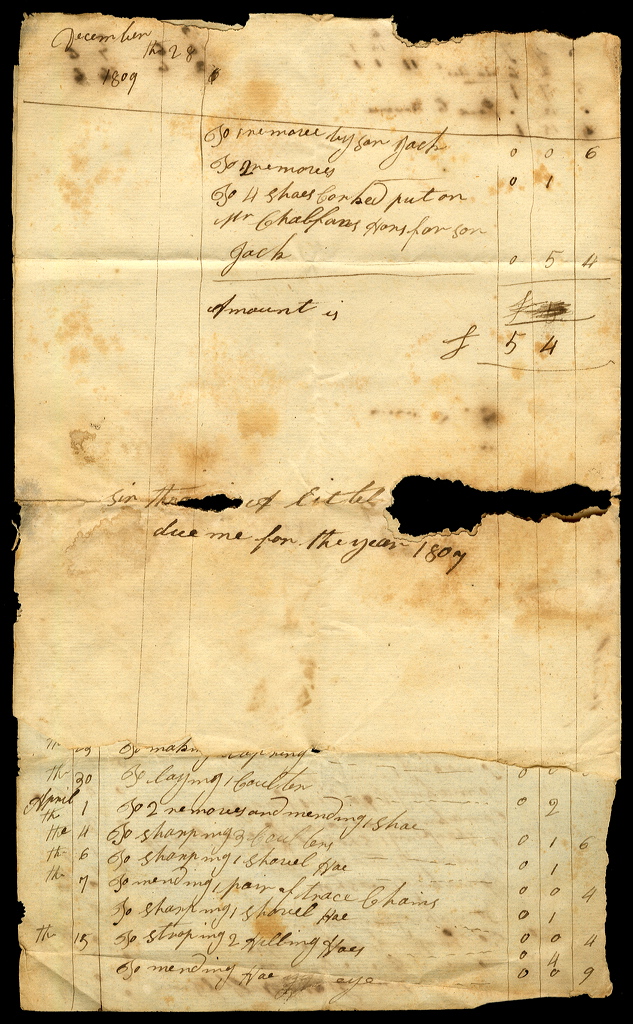 December
th 28
1809
To 1 remove by son Jack 0 0 6
To 2 removes 0 1
To 4 shoes Corked put on
Mr Chalfans Hors for son
Jack 0 5 4
Amount is
£ 5 4
Sir this is A
due me for the year 1809
th
To making
th 20 To laying 1 Coulter
April
th 1 To 2 removes and mending 1 shoe 0 2
the 4 To sharping 3 Coulters 0 1 6
th 6 To sharping 1 shovel Hoe 0 1
th 7 To mending 1 pair of trace Chains 0 0 4
To sharping 1 shovel Hoe 0 1
th 15 To stroping 2 Hilling Hoes 0 0 4
0 4
To mending Hoe eye 0 0 9